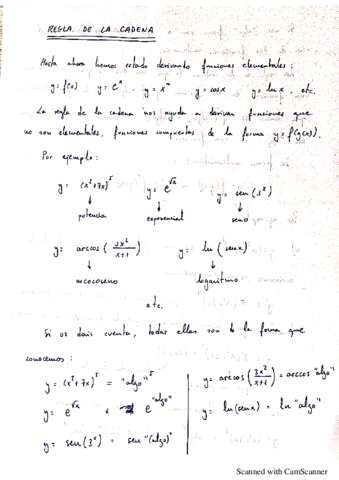 REGLA DE LA CADENA
Hasta ahora hemos estado derivando funciones elementales:
y=f(x) y=e^x y=x^n y=cosx y=lnx, etc.
La regla de la cadena nos ayuda a derivar funciones que
no son elementales, funciones compuestas de la forma y=f(g(x)).
Por ejemplo:
y=(x²+7x)^5 y=e^√x y=sen(3^x)
↓ ↓ ↓
potencia exponencial seno
y=arccos(3x²/x+1) y=ln(senx)
↓ ↓
arcocoseno logaritmo
etc.
Si os dais cuenta, todas ellas son de la forma que
conocemos:
y=(x²+7x)^5 = "algo"^5 y=arccos(3x²/x+1)=arccos "algo"
y=e^√x = e^"algo" y=ln(senx)=ln "algo"
y=sen(3^x) = sen "(algo)"
Scanned with CamScanner